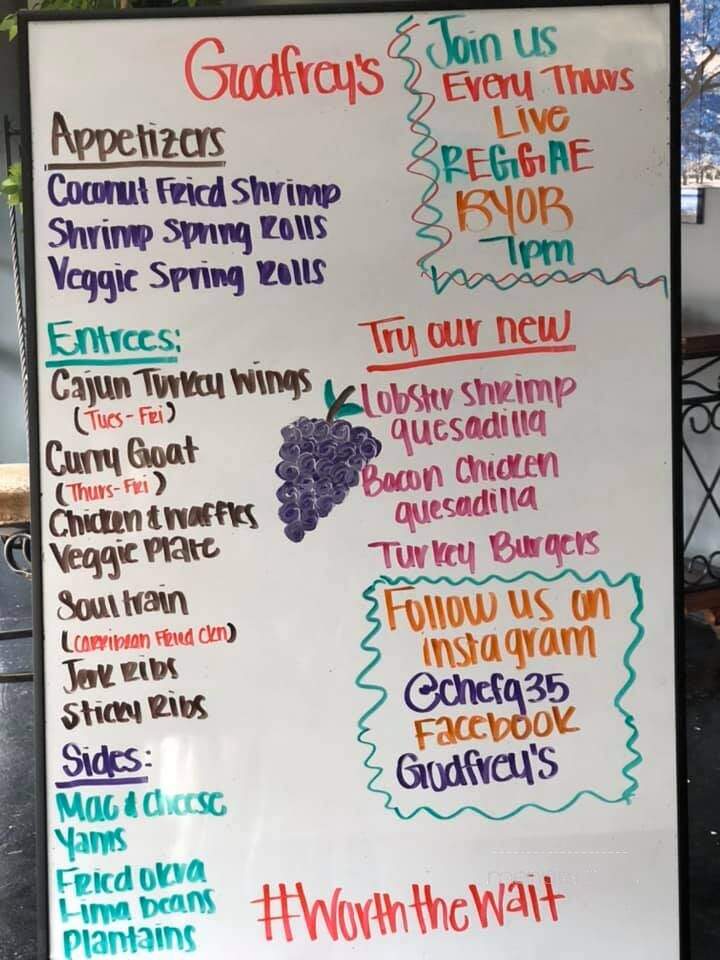 Godfrey's
Join us
Every Thurs
Live
REGGAE
BYOB
7pm
Appetizers
Coconut Fried Shrimp
Shrimp Spring Rolls
Veggie Spring Rolls
Entrees:
Cajun Turkey Wings
(Tues-Fri)
Curry Goat
(Thurs-Fri)
Chicken & Waffles
Veggie Plate
Soul train
(Carribean Fried ckn)
Jerk Ribs
Sticky Ribs
Sides:
Mac & cheese
Yams
Fried okra
Lima beans
Plantains
Try our new
Lobster shrimp
quesadilla
Bacon Chicken
quesadilla
Turkey Burgers
Follow us on
instagram
@chefq35
Facebook
Godfrey's
#Worth the Wait